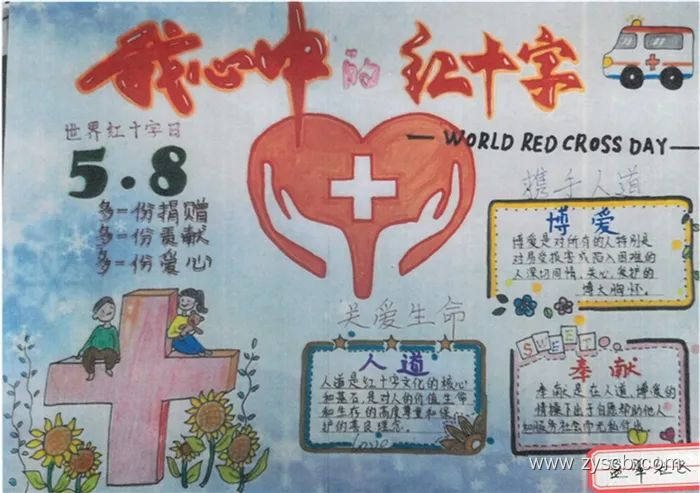 我心中的红十字
世界红十字日
5.8
WORLD RED CROSS DAY
多一份捐赠
多一份贡献
多一份爱心
携手人道
博爱
博爱是对所有的人特别是
对易受损害或陷入困难的
人深切同情、关心、爱护的
博大胸怀.
关爱生命
人道
人道是红十字文化的核心
和基石,是对人的价值生命
和生存的高度尊重和保
护的善良理念.
Love
SWEET
奉献
奉献是在人道、博爱的
情操下出于自愿帮助他人
和服务社会而无私付出.
www.zyscb.com